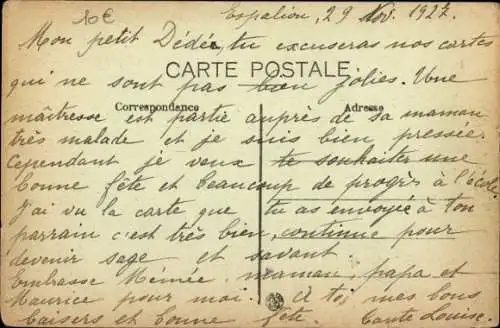 10€
Espalion, 29 Nov. 1927.
Mon petit Dédée, tu excuseras nos cartes
qui ne sont pas bien jolies. Une
CARTE POSTALE
Correspondance
Adresse
maîtresse est partie auprès de sa maman
très malade et je suis bien pressée.
Cependant je veux te souhaiter une
bonne fête et beaucoup de progrès à l'école.
J'ai vu la carte que tu as envoyée à ton
parrain c'est très bien, continue pour
devenir sage et savant.
Embrasse Mémée, maman, papa et
Maurice pour moi. A toi mes bons
baisers et bonne fête. Tante Louise.